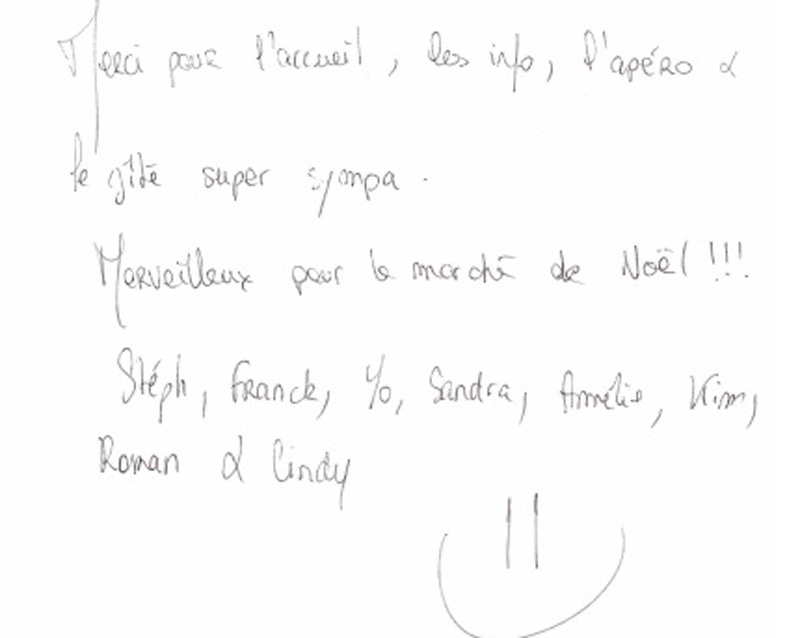 Merci pour l'accueil, les info, l'apéro &
le gîte super sympa.
Merveilleux pour le marché de Noël !!!
Stéph, Franck, Yo, Sandra, Amélie, Kim,
Roman & Cindy